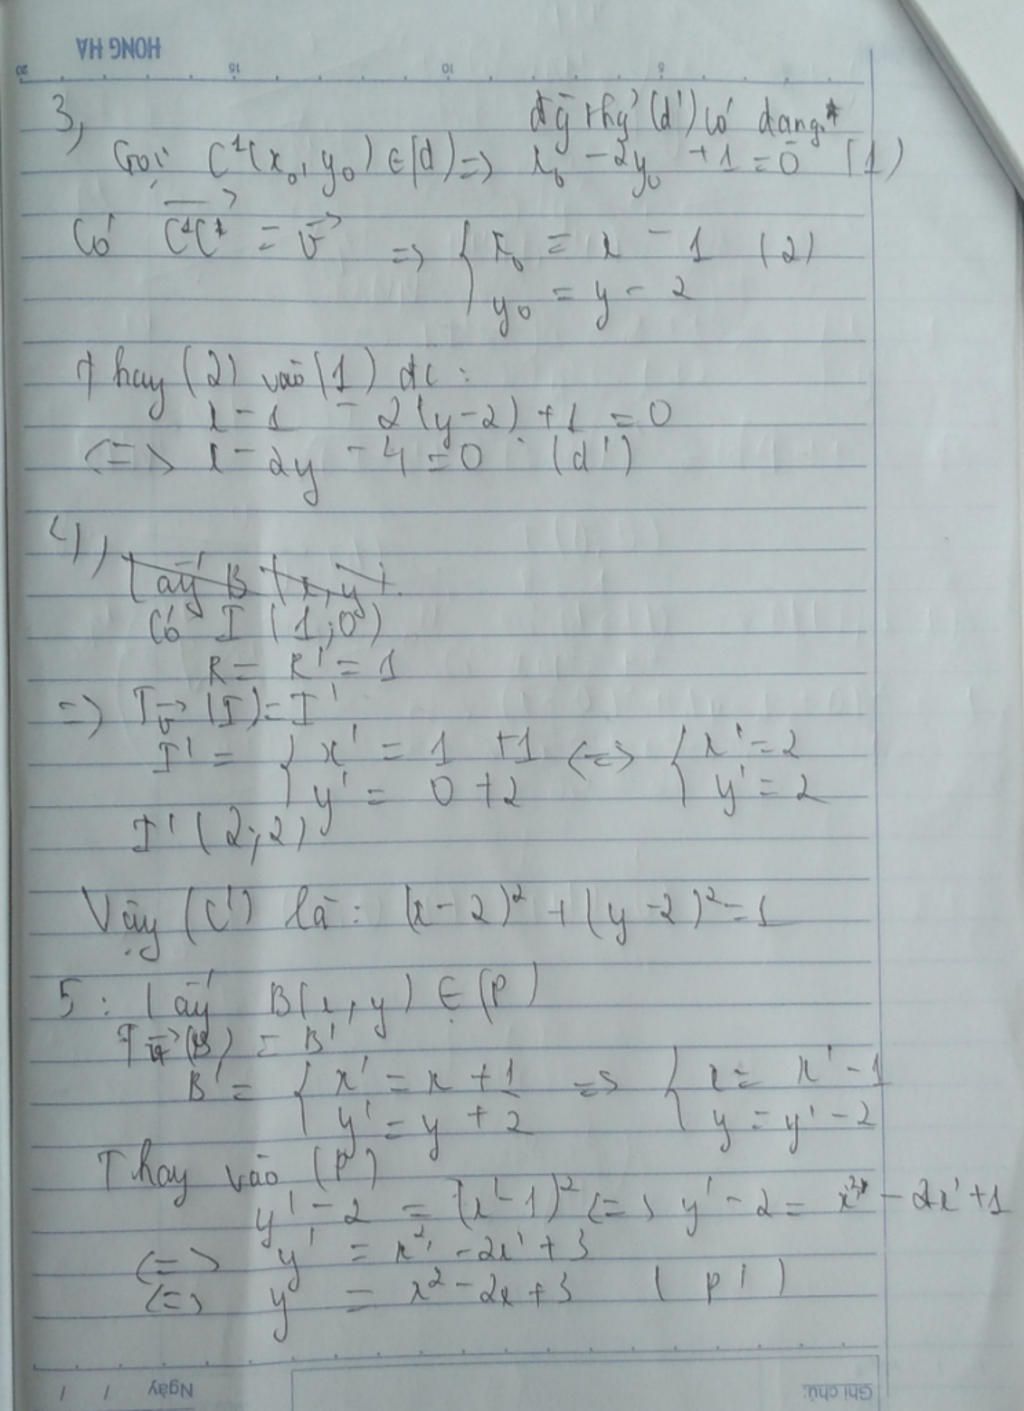 HONG HA
20 15 10 5
3,
đg thg' (d') có dạng
Gọi C¹(x₀, y₀) ∈ (d) => x₀ - 2y₀ + 1 = 0 (1)
Có = v => { x₀ = x - 1 (2)
y₀ = y - 2
Thay (2) vào (1) đc :
x - 1 - 2(y-2) + 1 = 0
<=> x - 2y - 4 = 0 (d')
4),
Lấy B (x, y).
Có I (1;0)
R = R' = 1
=> Tv (I) = I'
I' = { x' = 1 + 1 <=> { x' = 2
y' = 0 + 2 y' = 2
I' (2;2)
Vậy (C') là : (x - 2)² + (y - 2)² = 1
5 : Lấy B(x, y) ∈ (P)
Tv (B) = B'
B' = { x' = x + 1 => { x = x' - 1
y' = y + 2 y = y' - 2
Thay vào (P)
y' - 2 = (x' - 1)² <=> y' - 2 = x'² - 2x' + 1
<=> y' = x²' - 2x' + 3
<=> y = x² - 2x + 3 (P')
/ / Ngày
Ghi chú: